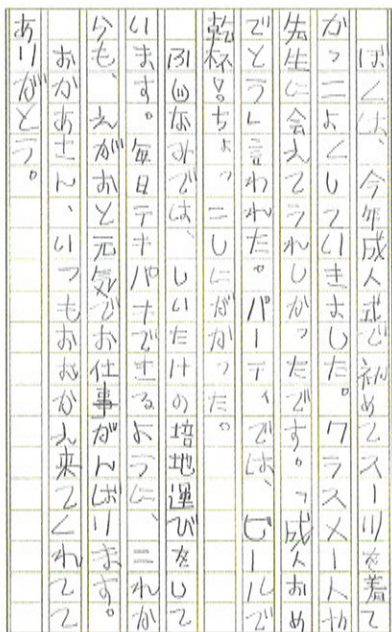 ぼくは、今年成人式で初めてスーツを着て
かっこよくしていきました。クラスメートや
先生に会えてうれしかったです。「成人おめ
でとう」と言われた。パーティでは、ビールで
乾杯!ちょっこしにがかった。
ふじなみでは、しいたけの培地運びをして
います。毎日テキパキできるように、これか
今も、えがおと元気でお仕事がんばります。
おかあさん、いつもおむかえ来てくれてて
ありがとう。